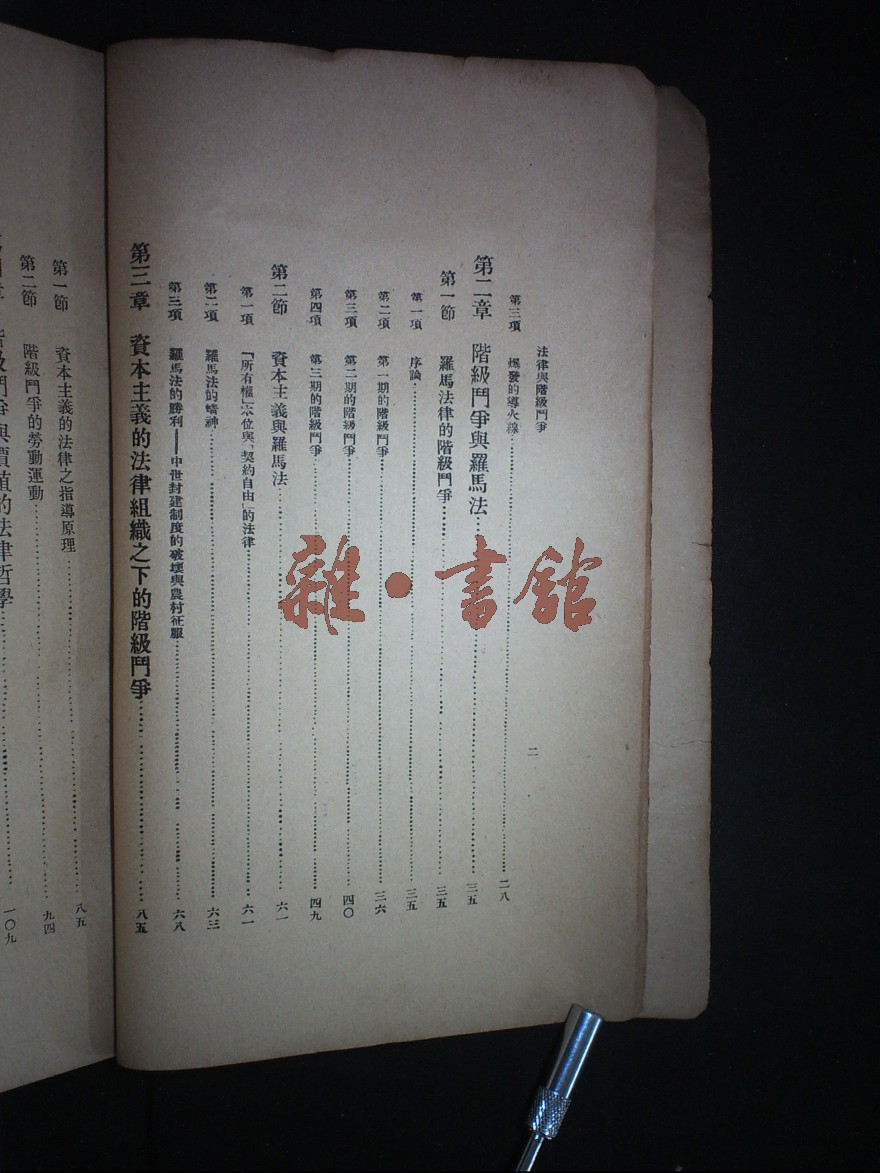 法律與階級鬥爭
二
第三項 爆發的導火線 二八
第二章 階級鬥爭與羅馬法 三五
第一節 羅馬法律的階級鬥爭 三五
第一項 序論 三五
第二項 第一期的階級鬥爭 三六
第三項 第二期的階級鬥爭 四〇
第四項 第三期的階級鬥爭 四九
第二節 資本主義與羅馬法 六一
第一項 「所有權」本位與「契約自由」的法律 六一
第二項 羅馬法的精神 六三
第三項 羅馬法的勝利——中世封建制度的破壞與農村征服 六八
第三章 資本主義的法律組織之下的階級鬥爭 八五
第一節 資本主義的法律之指導原理 八五
第二節 階級鬥爭的勞動運動 九四
章 階級鬥爭與價值的法律哲學 一〇九
雜·書館